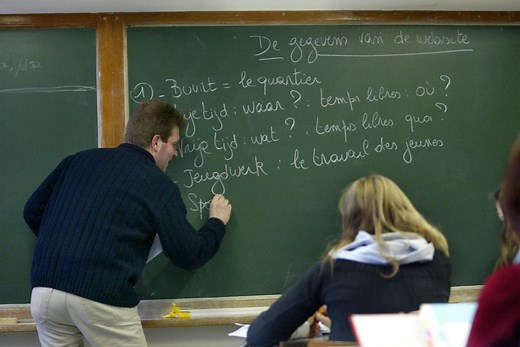 De gegevens van de website
① - Buurt = le quartier
Vrije tijd : waar ? : temps libres : où ?
Vrije tijd : wat ? : temps libres quoi ?
Jeugdwerk : le travail des jeunes
Spo